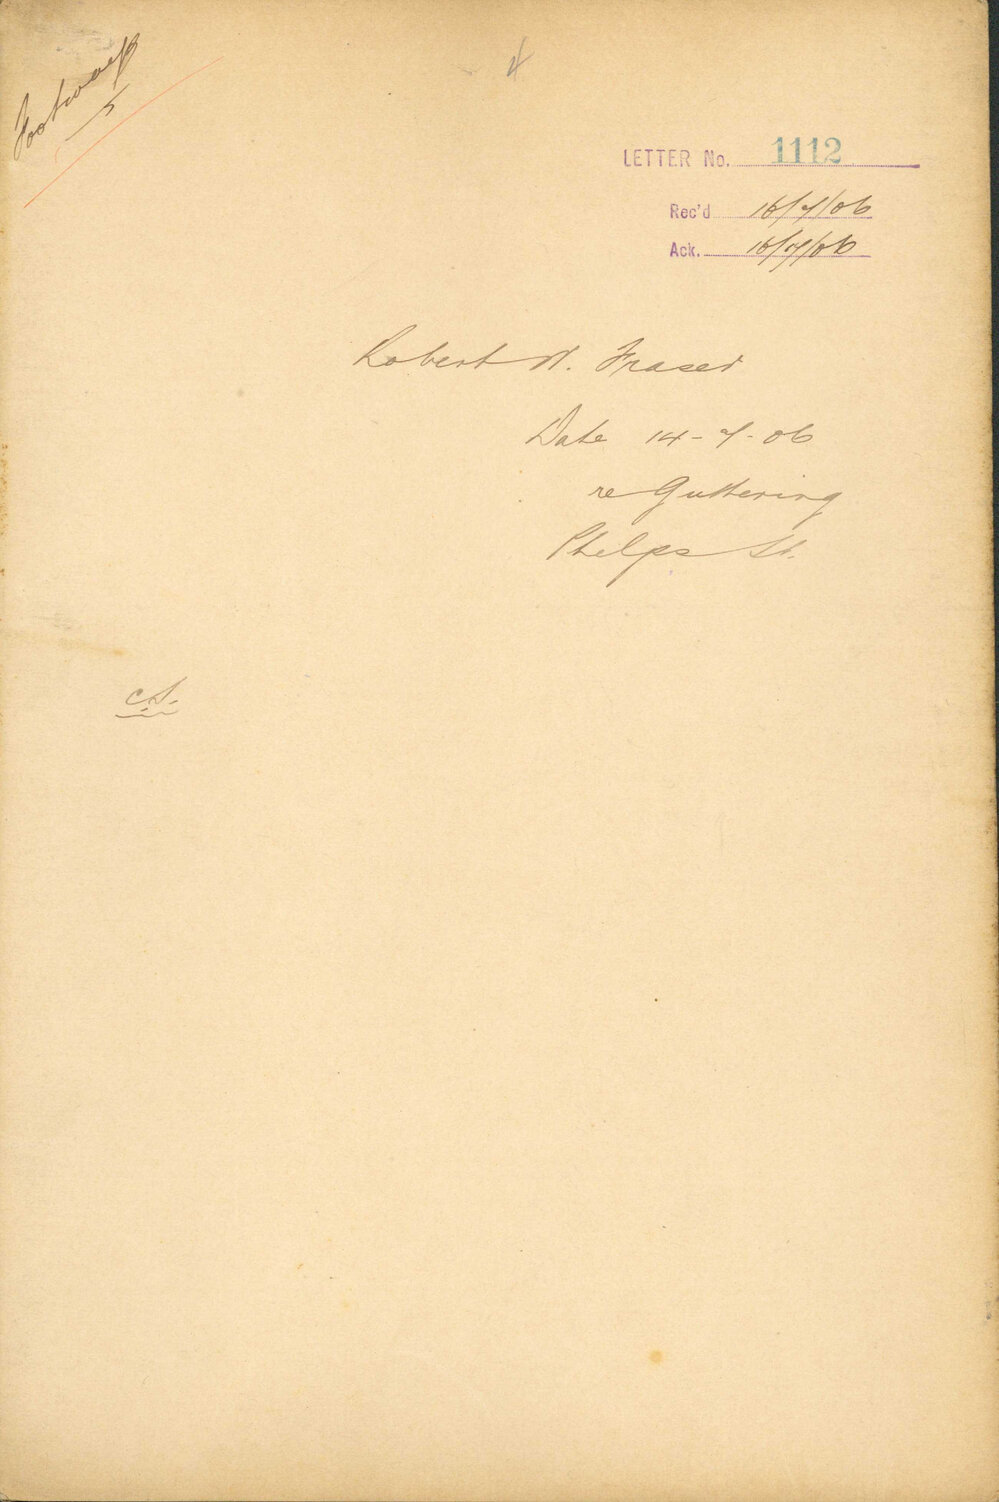 Footways
5
4
LETTER No. 1112
Rec'd 16/7/06
Ack. 16/7/06
Robert W. Fraser
Date 14-7-06
re Guttering
Phelps St.